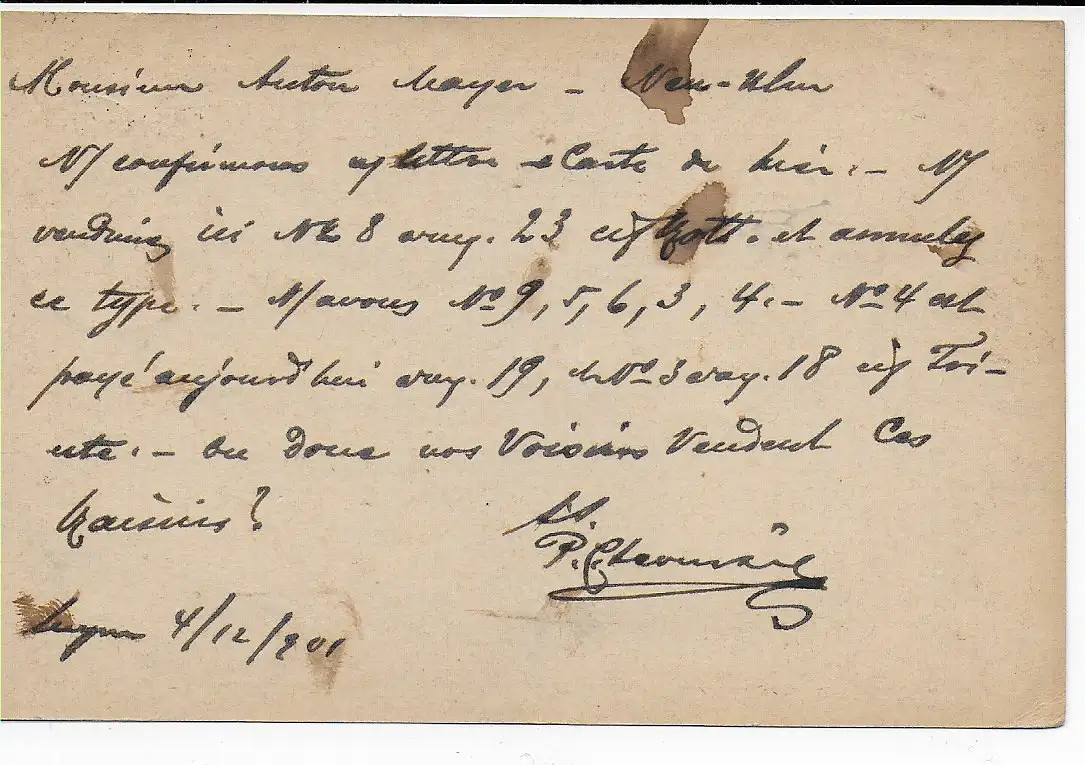 Monsieur Anton Mayer - Neu-Ulm
N/ confirmons n/ lettre & Carte de hier. - N/
vendrions ici No 8 avey. 23 cif Rott. et annulez
ce type. - N/ avons No 9, 5, 6, 3, 4. - No 4 est
payé aujourd'hui avey. 19, & No 3 avey. 18 cif Tri-
este. - Ou donc nos Voisins Vendent Ces
Raisins?
ss.
P.
4/12/901